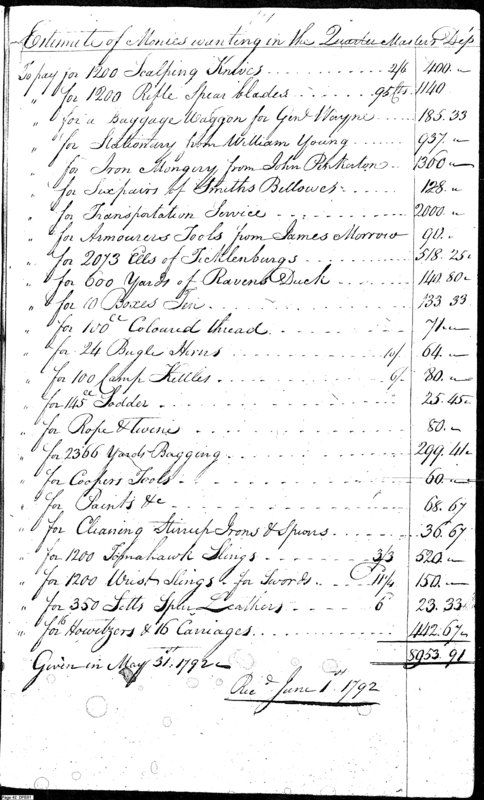 Estimate of Monies wanting in the Quarter Masters Dep
To pay for 1200 Scalping Knives 2/6 400.
" for 1200 Rifle Spear blades 95 Cts 1140
" for a Baggage Waggon for Genl Wayne 185.33
" for Stationary from William Young 957.
" for Iron Mongery from John Pinkerton 1360
" for Six pairs of Smiths Bellows 128.
" for Transportation Service 2000.
" for Armourers Tools from James Morrow 90.
" for 2073 Ells of Ticklenburgs 518.25
" for 600 Yards of Ravens Duck 140.80
" for 10 Boxes Tin 133 33
" for 100 Coloured thread 71.
" for 24 Bugle Horns 64.
" for 100 Camp Kettles 6/ 80.
" for 145 Sodder 25.45
" for Rope & twine 80.
" for 2366 Yards Bagging 299.41
" for Coopers Tools 60
" for Paints &c 68.67
" for Cleaning Stirrup Irons & Spurs 36.67
" for 1200 Tomahawk Slings 3/3 520.
" for 1200 Wrist Slings for Swords 11 1/4 150.
" for 350 Setts Leathers 6 23.33
" for 16 Howitzers & 16 Carriages 442.67
8953.91
Given in May 31st 1792
Recd June 1st 1792